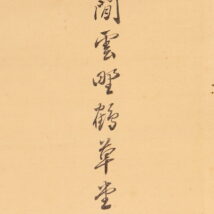 閒雲野鶴草堂